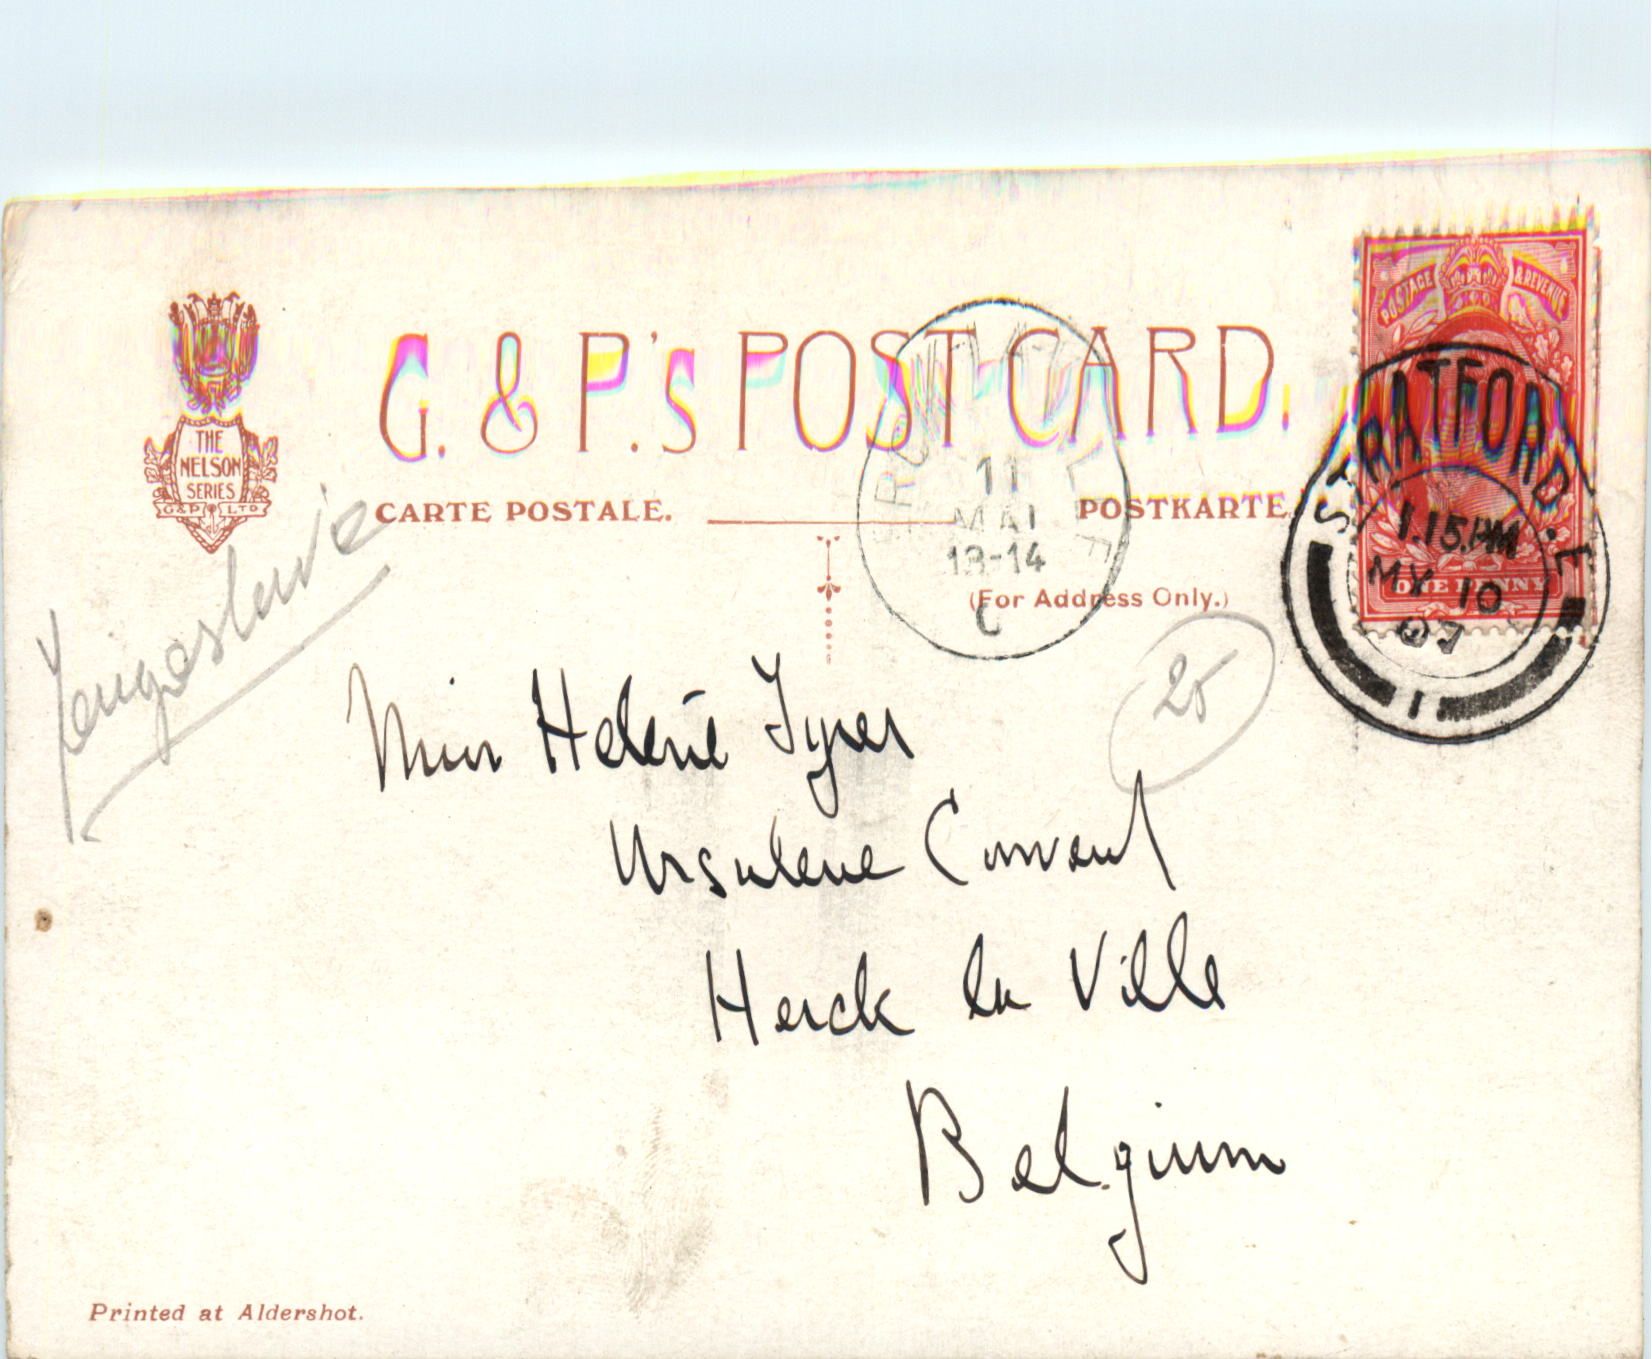 THE
NELSON
SERIES
G&P LTD
G. & P.'s POST CARD.
CARTE POSTALE. POSTKARTE
(For Address Only.)
POSTAGE & REVENUE
ONE PENNY
STRATFORD. E
1.15.PM
MY 10
07
1
11
MAI
13-14
C
25
Miss Helene Tyrer
Ursulene Convent
Herck la Ville
Belgium
Printed at Aldershot.